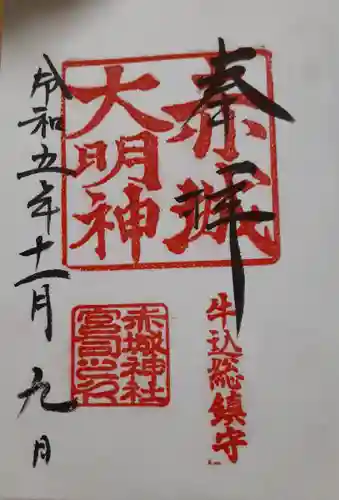 奉拝
赤城
大明神
牛込総鎮守
赤城神社
宮司之印
令和五年十一月九月